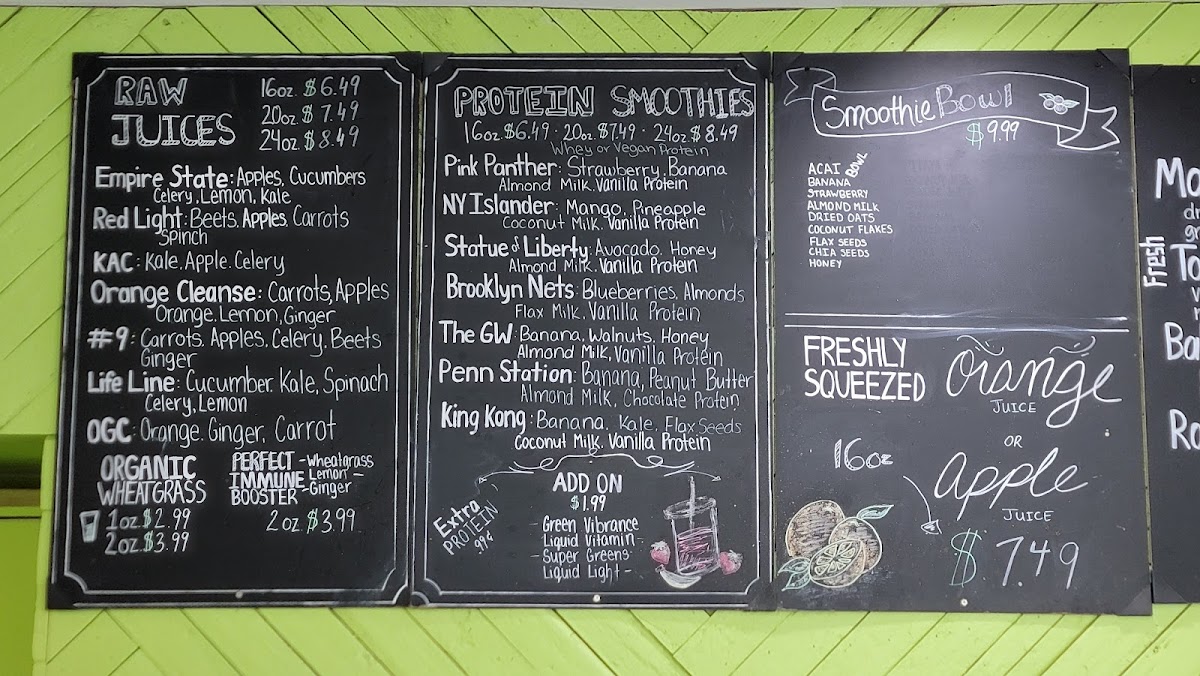 RAW
JUICES
16oz. $6.49
20oz. $7.49
24oz. $8.49
Empire State: Apples, Cucumbers
Celery, Lemon, Kale
Red Light: Beets. Apples. Carrots
Spinch
KAC: Kale. Apple. Celery
Orange Cleanse: Carrots, Apples
Orange. Lemon, Ginger
#9: Carrots. Apples, Celery, Beets
Ginger
Life Line: Cucumber Kale, Spinach
Celery, Lemon
OGC: Orange. Ginger, Carrot
ORGANIC
WHEATGRASS
1oz. $2.99
2oz. $3.99
PERFECT
IMMUNE
BOOSTER
-Wheatgrass
Lemon-
-Ginger
2 oz $3.99
PROTEIN SMOOTHIES
16oz. $6.49 · 20oz. $7.49 · 24oz. $8.49
Whey or Vegan Protein
Pink Panther: Strawberry, Banana
Almond Milk. Vanilla Protein
NY Islander: Mango, Pineapple
Coconut Milk. Vanilla Protein
Statue of Liberty: Avocado, Honey
Almond Milk. Vanilla Protein
Brooklyn Nets: Blueberries, Almonds
Flax Milk. Vanilla Protein
The GW: Banana, Walnuts, Honey
Almond Milk, Vanilla Protein
Penn Station: Banana, Peanut Butter
Almond Milk, Chocolate Protein
King Kong: Banana, Kale, Flax Seeds
Coconut Milk, Vanilla Protein
Extra
PROTEIN
99¢
ADD ON
$1.99
- Green Vibrance
Liquid Vitamin -
- Super Greens -
Liquid Light -
Smoothie Bowl
$9.99
ACAI BOWL
BANANA
STRAWBERRY
ALMOND MILK
DRIED OATS
COCONUT FLAKES
FLAX SEEDS
CHIA SEEDS
HONEY
FRESHLY
SQUEEZED
Orange
JUICE
OR
Apple
JUICE
16oz
$7.49
Fresh